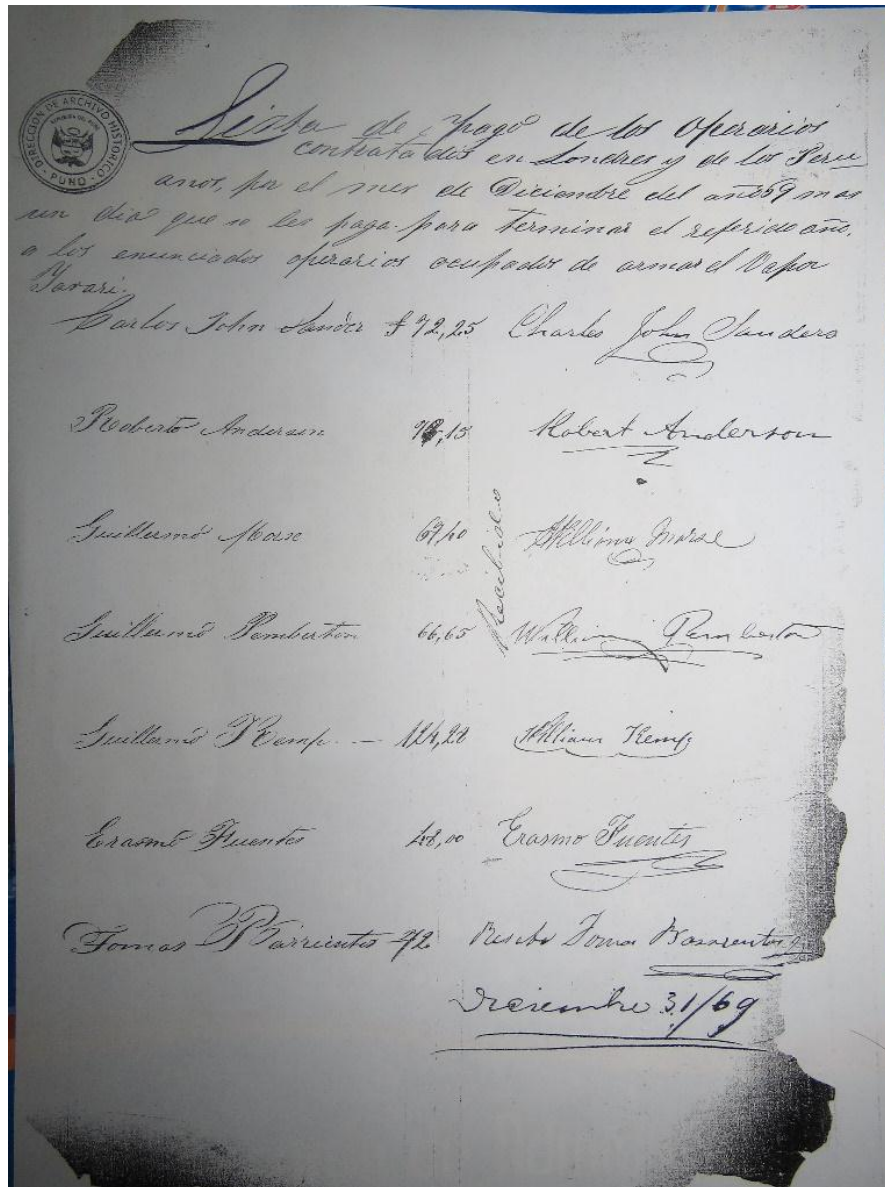 DIRECCION DE ARCHIVO HISTORICO
REPUBLICA DEL PERU
- PUNO -
Lista de pago de los Operarios
contratados en Londres y de los Peru
anos, por el mes de Diciembre del año 69 mas
un dia que se les paga para terminar el referido año,
a los enunciados operarios ocupados de armar el Vapor
Yavari.
Carlos John Sander $ 72,25 Charles John Sanders
Roberto Anderson ,15 Robert Anderson
Guillermo Morse 69,40 William Morse
Recibido
Guillermo Pemberton 66,65 William Pemberton
Guillermo Kemp. — 124,20 William Kemp
Erasmo Fuentes 48,00 Erasmo Fuentes
Tomas Barrientos 42 Tomas Barrientos
Diciembre 31/69